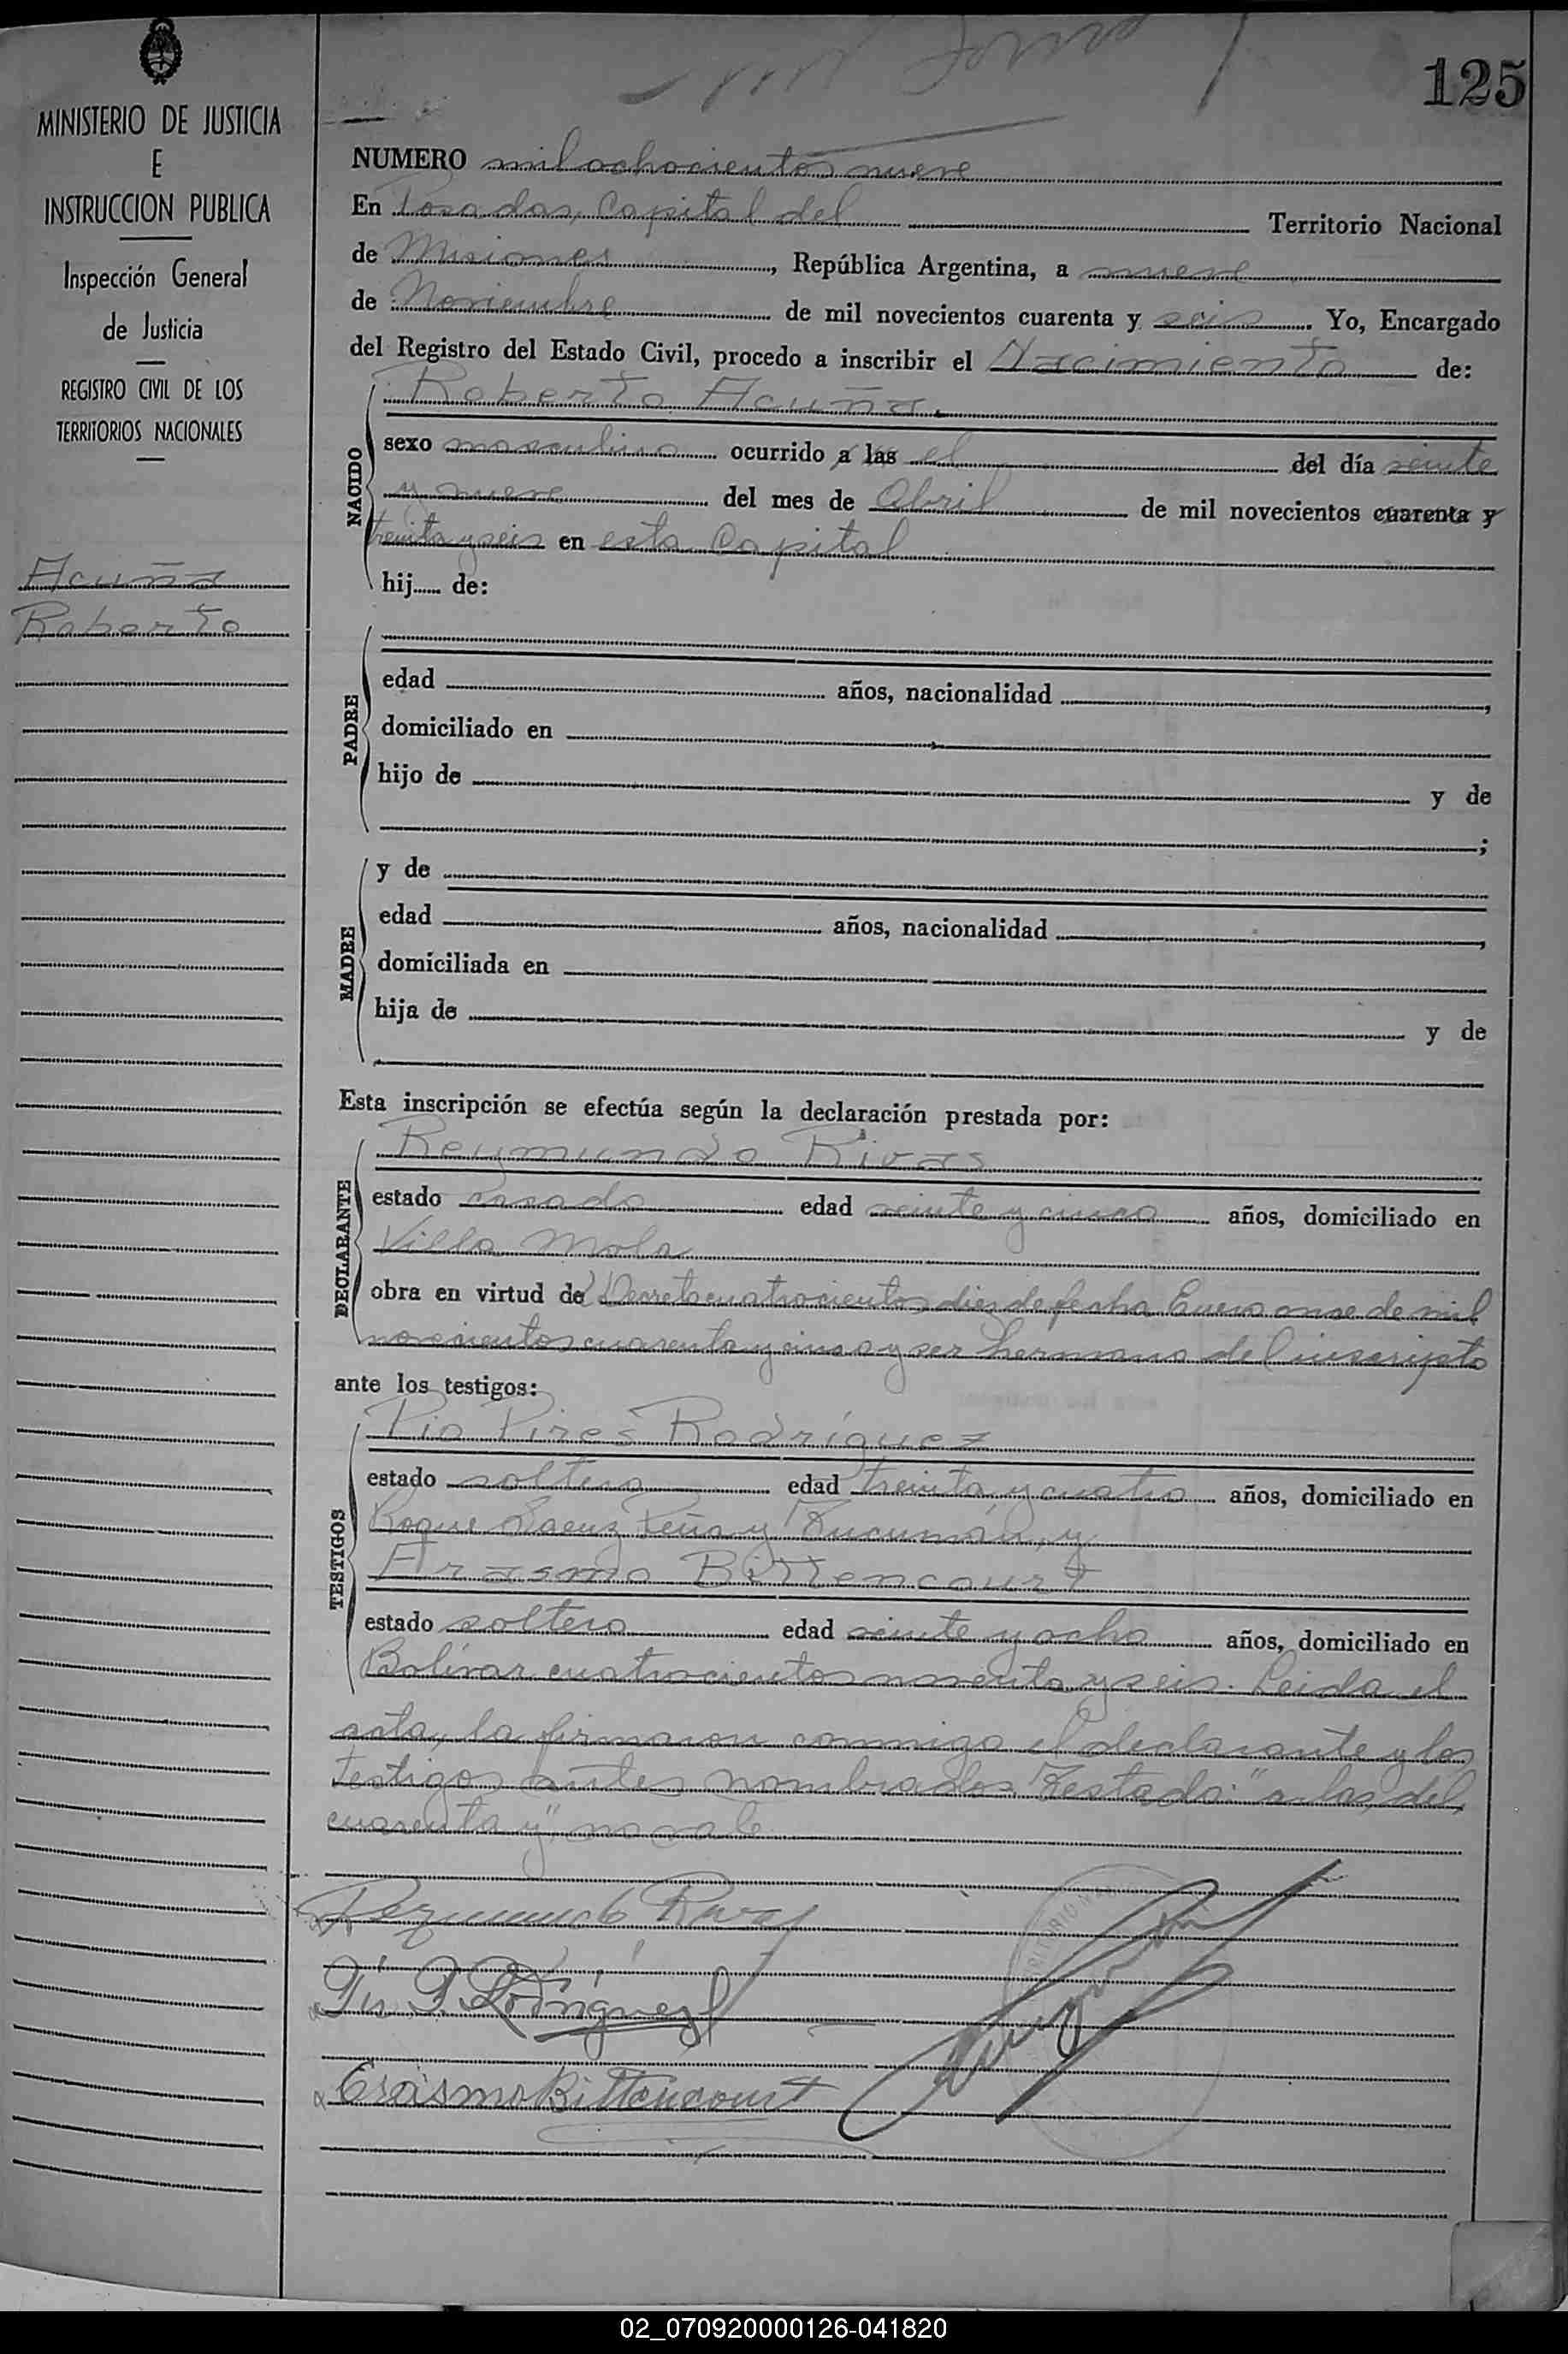 125
MINISTERIO DE JUSTICIA
E
INSTRUCCION PUBLICA
Inspección General
de Justicia
REGISTRO CIVIL DE LOS
TERRITORIOS NACIONALES
Acuña
Roberto
NUMERO mil ochocientos nueve
En Posadas, Capital del Territorio Nacional
de Misiones, República Argentina, a nueve
de Noviembre de mil novecientos cuarenta y seis. Yo, Encargado
del Registro del Estado Civil, procedo a inscribir el Nacimiento de:
NACIDO
Roberto Acuña.
sexo masculino ocurrido a las el del día veinte
y nueve del mes de Abril de mil novecientos cuarenta y
treinta y seis en esta Capital
hij...... de:
PADRE
edad años, nacionalidad ,
domiciliado en
hijo de y de
;
MADRE
y de
edad años, nacionalidad ,
domiciliada en
hija de y de
Esta inscripción se efectúa según la declaración prestada por:
DECLARANTE
Reymundo Rivas
estado casado edad veinte y cinco años, domiciliado en
Villa Mola
obra en virtud de Decreto cuatrocientos diez de fecha Enero onse de mil
novecientos cuarenta y cinco y ser hermano del inscripto
ante los testigos:
TESTIGOS
Pio Pires Rodríguez
estado soltero edad treinta y cuatro años, domiciliado en
Roque Saenz Peña y Tucumán, y
Arasmo Bittencourt
estado soltero edad veinte y ocho años, domiciliado en
Bolívar cuatrocientos noventa y seis. Leida el
acta, la firmaron conmigo el declarante y los
testigos antes nombrados. Testado: "a las, del,
cuarenta y", no vale
Reymundo Rivas
Pío P. Rodríguez
Erasmo Bittencourt
02_070920000126-041820